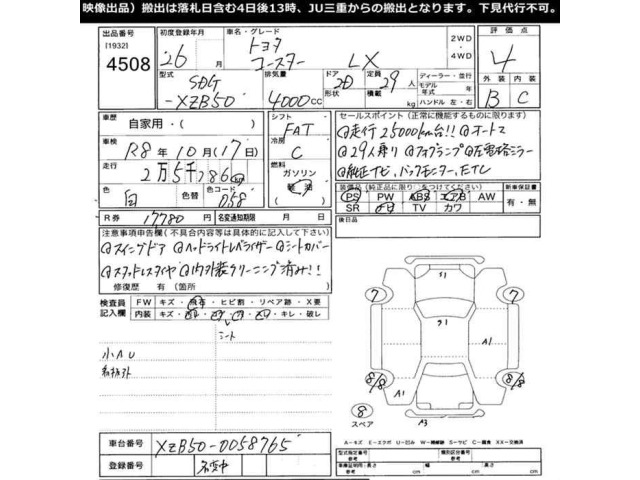 映像出品）搬出は落札日含む4日後13時、JU三重からの搬出となります。下見代行不可。
出品番号 初度登録年月 車名・グレード 2WD・4WD 評価点
[1932]
4508 26 月 トヨタ コースター LX 4
型式 排気量 ドア 形状 定員 積載 ディーラー・並行 外装 内装
SDG-XZB50 4000cc 2D 29人 kg モデル年式 年式 ハンドル 左・右 B C
車歴 自家用・( ) シフト FAT セールスポイント（正常に機能するものに限ります）
車検 R8年10月(17日) 冷房 C @走行25000km台!! @オートマ
走行 2万5千786km 燃料 ガソリン 軽油 @29人乗り @フォグランプ @左電格ミラー
@純正ナビ、バックモニター、ETC
色 白 色コード 058 装備品（純正品に限り○をつけてください） 新車保証書
PS PW ABS エアB AW 有・無
SR ナビ TV カワ
R券 17780 名変通知期限 月 日 後日品
注意事項申告欄（不具合内容等は具体的に記入して下さい）
@スイングドア @ヘッドライトレベライザー @シートカバー
@スタッドレスタイヤ @内外装クリーニング済み!!
修復歴 有（箇所 ）
検査員記入欄 FW キズ・飛石・ヒビ割・リペア跡・X要
内装 キズ・ キレ・破レ
シート
小AU
7 7
S1
S1 A1
8/8 8/8
A1
8 スペア A3
A－キズ E－エクボ U－凹み W－補修跡 S－サビ C－腐食 XX－交換済
車台番号 XZB50-0058765 型式指定番号 参考 類別区分番号 参考
登録番号 不変中 車庫証明用・長さ 参考 cm 幅 cm 高さ cm